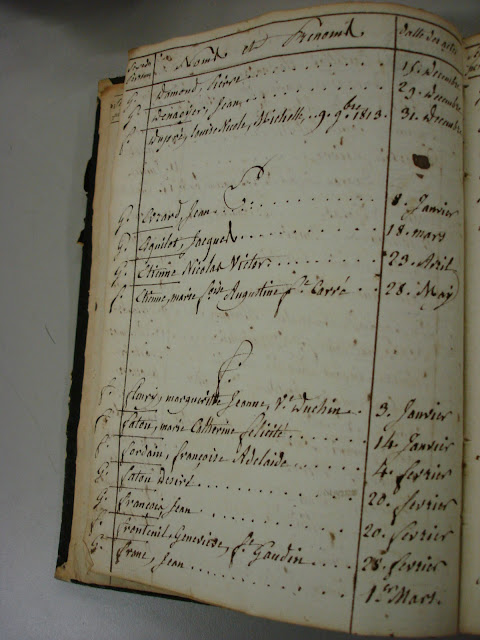 Noms et Prénoms Datte des actes
G. Dumond, Pierre 15. Decembre
G. Denoyer, Jean 29. Decembre
f. Louise Nicole, Michelle, 9. 9bre 1813. 31. Decembre
E
G. Evrard, Jean 8. Janvier
G. Eguilot, Jacques 18. mars
G. Etienne Nicolas Victor 23. Avril
f. Etienne, marie foise Augustine fe Carré 28. May
F
f. fleury, marguerite Jeanne, Ve Duchin 3. Janvier
f. fatou, marie Catherine felicité 14. Janvier
f. françoise Adelaide 4. fevrier
G. fatou Desiré 20. fevrier
G. François, Jean 20. fevrier
f. fronteuil, Genevieve, fe Gaudin 28. fevrier
G. franc, Jean 1er Mars.